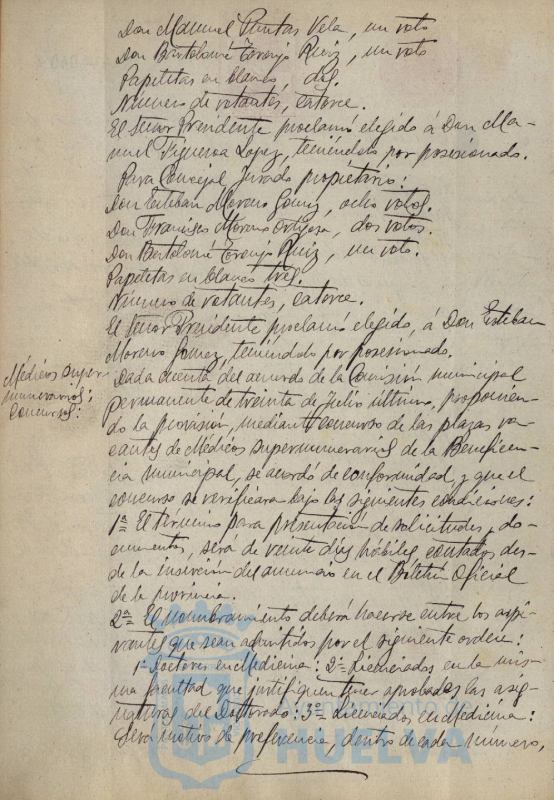 Don Manuel Puntas Vela, un voto
Don Bartolomé Toronjo Ruiz, un voto
Papeletas en blanco dos.
Número de votantes, catorce.
El señor Presidente proclamó elegido á Don Ma-
nuel Figueroa Lopez, teniéndolo por posesionado.
Para Concejal Jurado propietario:
Don Esteban Moreno Gomez, ocho votos.
Don Francisco Moreno Ortigosa, dos votos.
Don Bartolomé Toronjo Ruiz, un voto.
Papeletas en blanco tres.
Número de votantes, catorce.
El señor Presidente proclamó elegido, á Don Esteban
Moreno Gomez, teniéndolo por posesionado.
Médicos super
numerarios;
Concurso:
Dada cuenta del acuerdo de la Comisión municipal
permanente de treinta de Julio último, proponien-
do la provisión, mediante concurso de las plazas va-
cantes de Médicos supernumerarios de la Beneficen-
cia municipal, se acordó de conformidad, y que el
concurso se verificara bajo las siguientes condiciones:
1ª= El término para presentacion de solicitudes y do-
cumentos, será de veinte días hábiles, contados des-
de la inserción del anuncio en el Boletin Oficial
de la provincia.
2ª= El nombramiento deberá hacerse entre los aspi-
rantes que sean admitidos por el siguiente orden:
1º= Doctores en Medicina: 2º= Licenciados en la mis-
ma facultad que justifiquen tener aprobadas las asig-
naturas del Doctorado: 3º= Licenciados en Medicina:
Será motivo de preferencia, dentro de cada número,
Ayuntamiento de
HUELVA